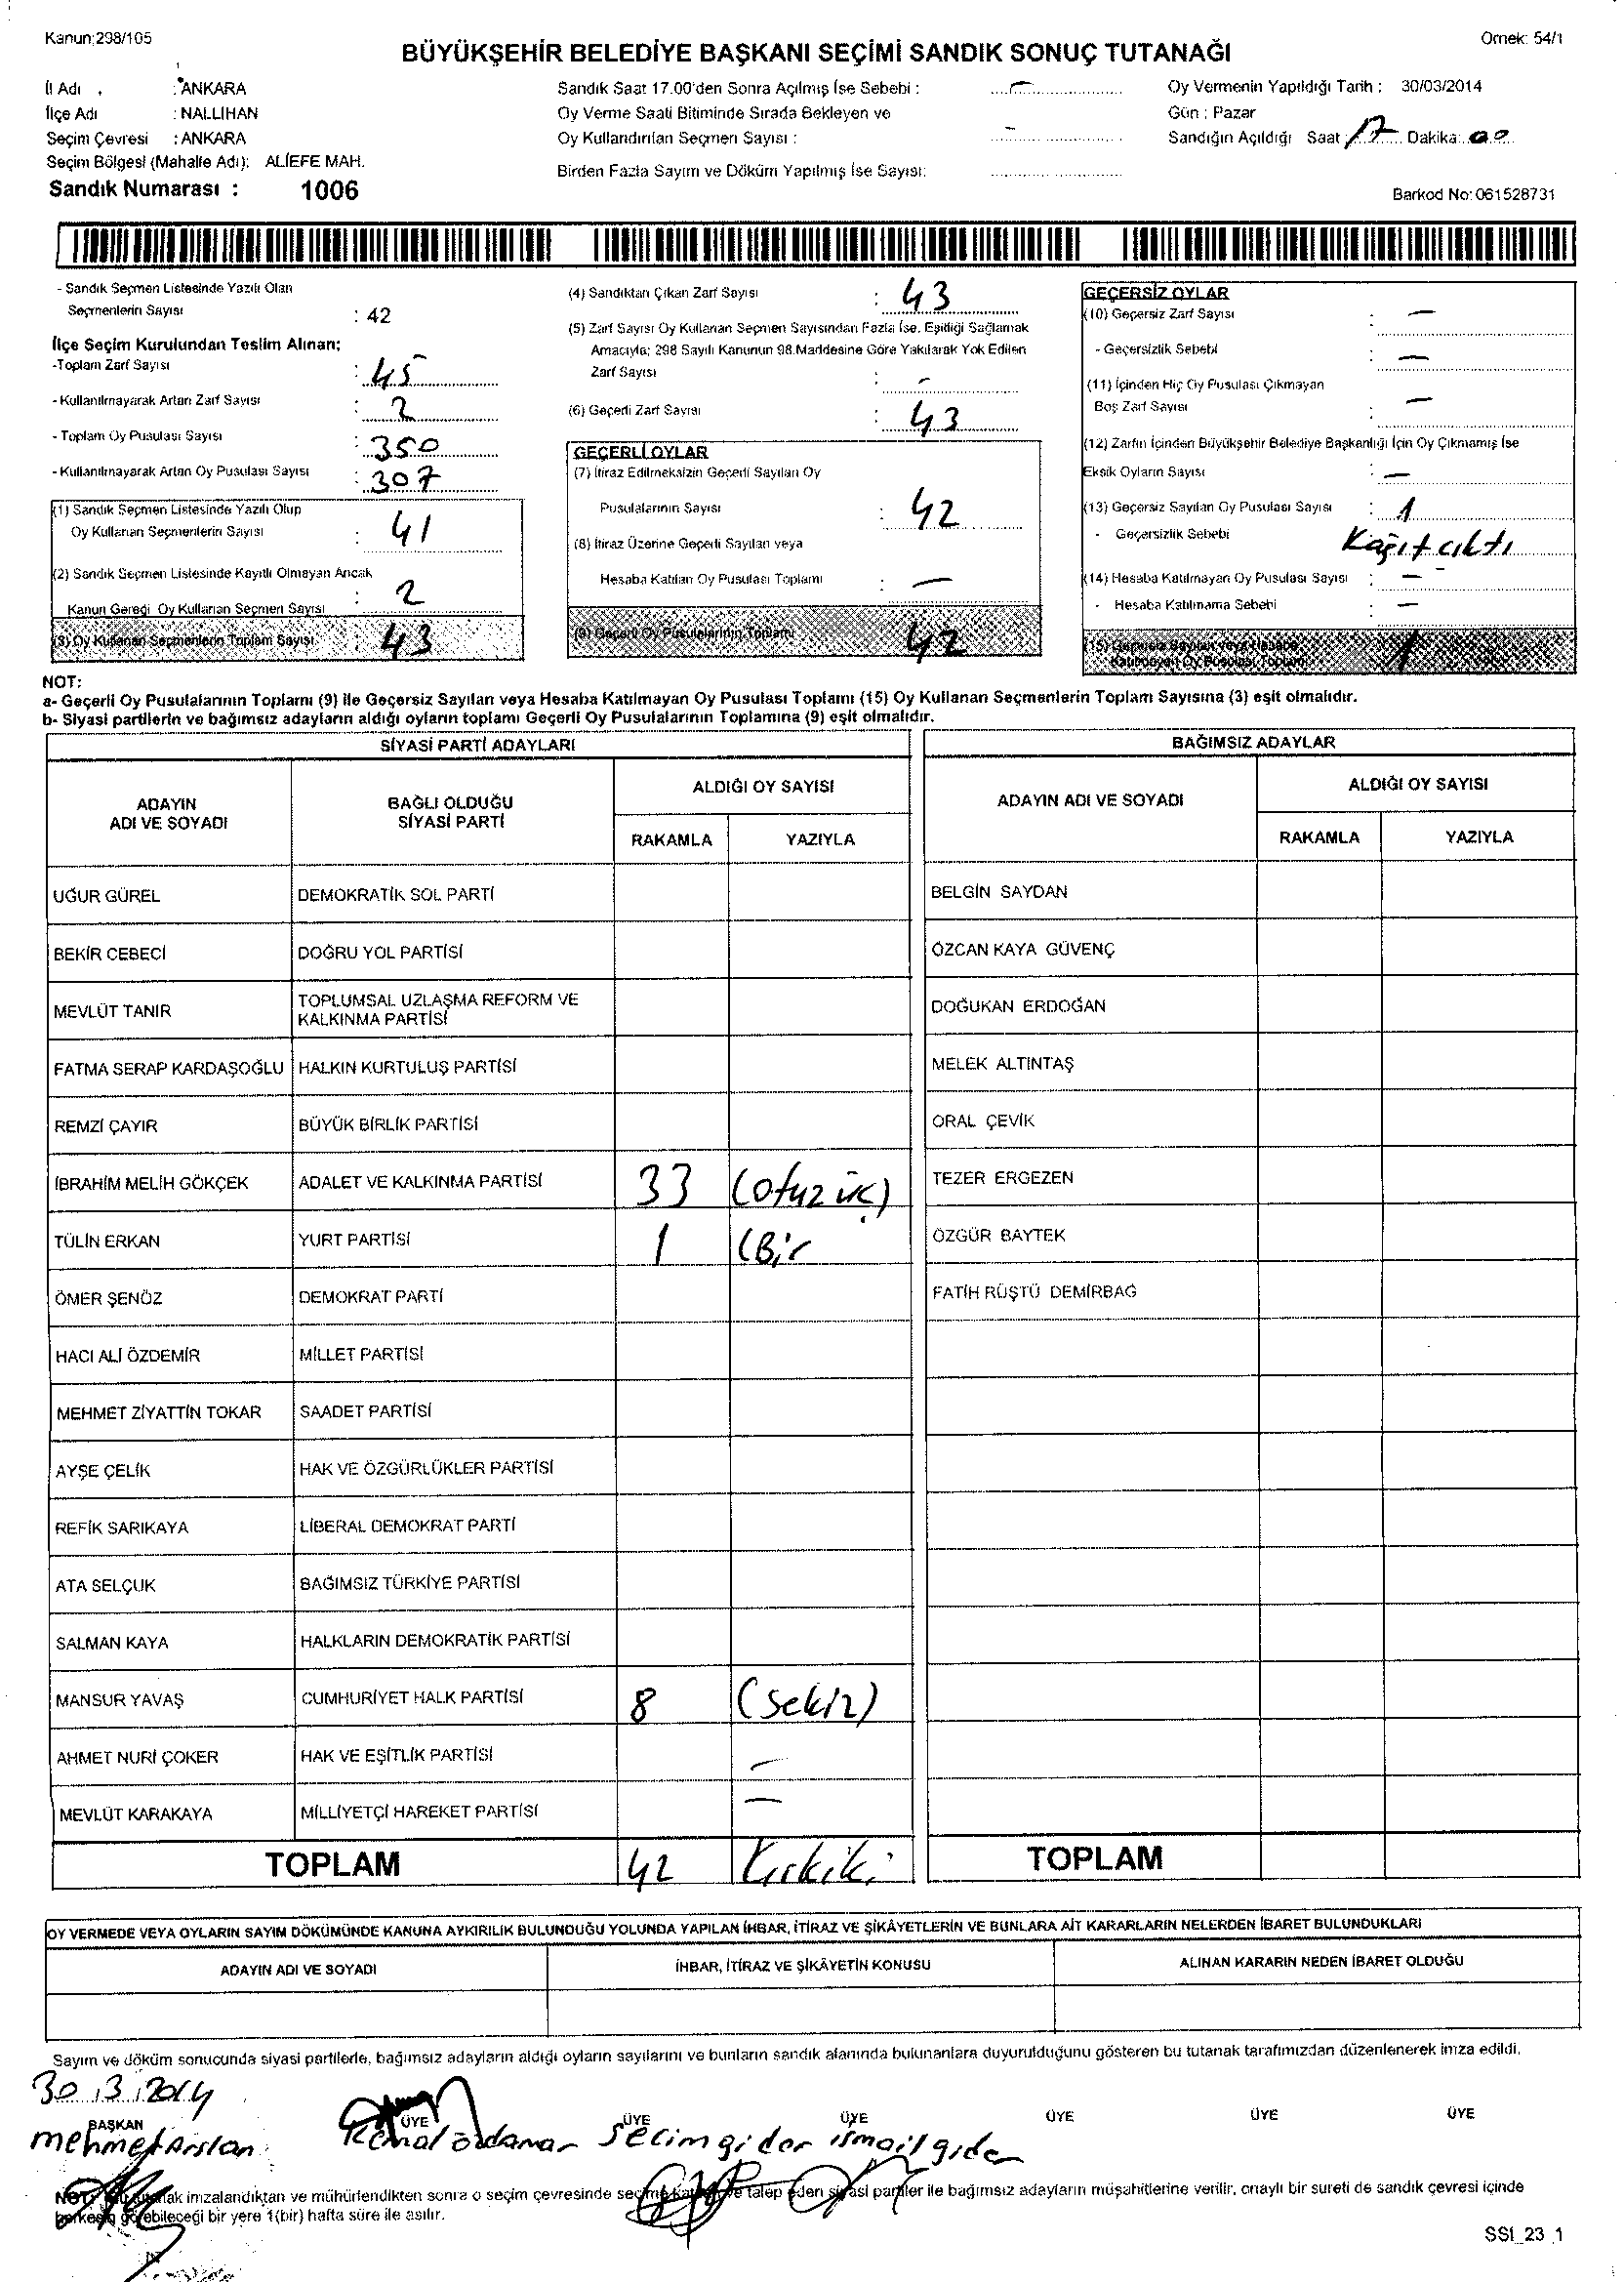 Kanun:298/105
Örnek: 54/1
BÜYÜKŞEHİR BELEDİYE BAŞKANI SEÇİMİ SANDIK SONUÇ TUTANAĞI
İl Adı : ANKARA
İlçe Adı : NALLIHAN
Seçim Çevresi : ANKARA
Seçim Bölgesi (Mahalle Adı): ALİEFE MAH.
Sandık Numarası : 1006
Sandık Saat 17.00'den Sonra Açılmış İse Sebebi : —
Oy Verme Saati Bitiminde Sırada Bekleyen ve
Oy Kullandırılan Seçmen Sayısı : –
Birden Fazla Sayım ve Döküm Yapılmış İse Sayısı:
Oy Vermenin Yapıldığı Tarih : 30/03/2014
Gün : Pazar
Sandığın Açıldığı Saat 17 Dakika: 00
Barkod No: 061528731
- Sandık Seçmen Listesinde Yazılı Olan
Seçmenlerin Sayısı : 42
İlçe Seçim Kurulundan Teslim Alınan;
-Toplam Zarf Sayısı : 45
- Kullanılmayarak Artan Zarf Sayısı : 2
- Toplam Oy Pusulası Sayısı : 350
- Kullanılmayarak Artan Oy Pusulası Sayısı : 307
(1) Sandık Seçmen Listesinde Yazılı Olup
Oy Kullanan Seçmenlerin Sayısı : 41
(2) Sandık Seçmen Listesinde Kayıtlı Olmayan Ancak
Kanun Gereği Oy Kullanan Seçmen Sayısı : 2
(3) Oy Kullanan Seçmenlerin Toplam Sayısı : 43
(4) Sandıktan Çıkan Zarf Sayısı : 43
(5) Zarf Sayısı Oy Kullanan Seçmen Sayısından Fazla İse, Eşitliği Sağlamak
Amacıyla; 298 Sayılı Kanunun 98.Maddesine Göre Yakılarak Yok Edilen
Zarf Sayısı : –
(6) Geçerli Zarf Sayısı : 43
GEÇERLİ OYLAR
(7) İtiraz Edilmeksizin Geçerli Sayılan Oy
Pusulalarının Sayısı : 42
(8) İtiraz Üzerine Geçerli Sayılan veya
Hesaba Katılan Oy Pusulası Toplamı : —
(9) Geçerli Oy Pusulalarının Toplamı 42
GEÇERSİZ OYLAR
(10) Geçersiz Zarf Sayısı : —
- Geçersizlik Sebebi : —
(11) İçinden Hiç Oy Pusulası Çıkmayan
Boş Zarf Sayısı : —
(12) Zarfın İçinden Büyükşehir Belediye Başkanlığı İçin Oy Çıkmamış İse
Eksik Oyların Sayısı : —
(13) Geçersiz Sayılan Oy Pusulası Sayısı : 1
- Geçersizlik Sebebi Kağıt cıktı
(14) Hesaba Katılmayan Oy Pusulası Sayısı : —
- Hesaba Katılmama Sebebi : —
(15) Geçersiz Sayılan veya Hesaba
Katılmayan Oy Pusulası Toplamı 1
NOT:
a- Geçerli Oy Pusulalarının Toplamı (9) ile Geçersiz Sayılan veya Hesaba Katılmayan Oy Pusulası Toplamı (15) Oy Kullanan Seçmenlerin Toplam Sayısına (3) eşit olmalıdır.
b- Siyasi partilerin ve bağımsız adayların aldığı oyların toplamı Geçerli Oy Pusulalarının Toplamına (9) eşit olmalıdır.
SİYASİ PARTİ ADAYLARI
ADAYIN ADI VE SOYADI
BAĞLI OLDUĞU SİYASİ PARTİ
ALDIĞI OY SAYISI
RAKAMLA YAZIYLA
UĞUR GÜREL DEMOKRATİK SOL PARTİ
BEKİR CEBECİ DOĞRU YOL PARTİSİ
MEVLÜT TANIR TOPLUMSAL UZLAŞMA REFORM VE KALKINMA PARTİSİ
FATMA SERAP KARDAŞOĞLU HALKIN KURTULUŞ PARTİSİ
REMZİ ÇAYIR BÜYÜK BİRLİK PARTİSİ
İBRAHİM MELİH GÖKÇEK ADALET VE KALKINMA PARTİSİ 33 (otuz üç)
TÜLİN ERKAN YURT PARTİSİ 1 (Bir
ÖMER ŞENÖZ DEMOKRAT PARTİ
HACI ALİ ÖZDEMİR MİLLET PARTİSİ
MEHMET ZİYATTİN TOKAR SAADET PARTİSİ
AYŞE ÇELİK HAK VE ÖZGÜRLÜKLER PARTİSİ
REFİK SARIKAYA LİBERAL DEMOKRAT PARTİ
ATA SELÇUK BAĞIMSIZ TÜRKİYE PARTİSİ
SALMAN KAYA HALKLARIN DEMOKRATİK PARTİSİ
MANSUR YAVAŞ CUMHURİYET HALK PARTİSİ 8 (Sekiz)
AHMET NURİ ÇOKER HAK VE EŞİTLİK PARTİSİ —
MEVLÜT KARAKAYA MİLLİYETÇİ HAREKET PARTİSİ —
TOPLAM 42 Kırkiki
BAĞIMSIZ ADAYLAR
ADAYIN ADI VE SOYADI
ALDIĞI OY SAYISI
RAKAMLA YAZIYLA
BELGİN SAYDAN
ÖZCAN KAYA GÜVENÇ
DOĞUKAN ERDOĞAN
MELEK ALTINTAŞ
ORAL ÇEVİK
TEZER ERGEZEN
ÖZGÜR BAYTEK
FATİH RÜŞTÜ DEMİRBAĞ
TOPLAM
OY VERMEDE VEYA OYLARIN SAYIM DÖKÜMÜNDE KANUNA AYKIRILIK BULUNDUĞU YOLUNDA YAPILAN İHBAR, İTİRAZ VE ŞİKÂYETLERİN VE BUNLARA AİT KARARLARIN NELERDEN İBARET BULUNDUKLARI
ADAYIN ADI VE SOYADI
İHBAR, İTİRAZ VE ŞİKÂYETİN KONUSU
ALINAN KARARIN NEDEN İBARET OLDUĞU
Sayım ve döküm sonucunda siyasi partilerle, bağımsız adayların aldığı oyların sayılarını ve bunların sandık alanında bulunanlara duyurulduğunu gösteren bu tutanak tarafımızdan düzenlenerek imza edildi.
30.3.2014
BAŞKAN ÜYE ÜYE ÜYE ÜYE ÜYE ÜYE
mehmet Arslan Kemal Secim gider ismail gider
NOT: Bu tutanak imzalandıktan ve mühürlendikten sonra o seçim çevresinde seçime katılan ve talep eden siyasi partiler ile bağımsız adayların müşahitlerine verilir, onaylı bir sureti de sandık çevresi içinde
herkesin görebileceği bir yere 1(bir) hafta süre ile asılır.
SSI_23_1